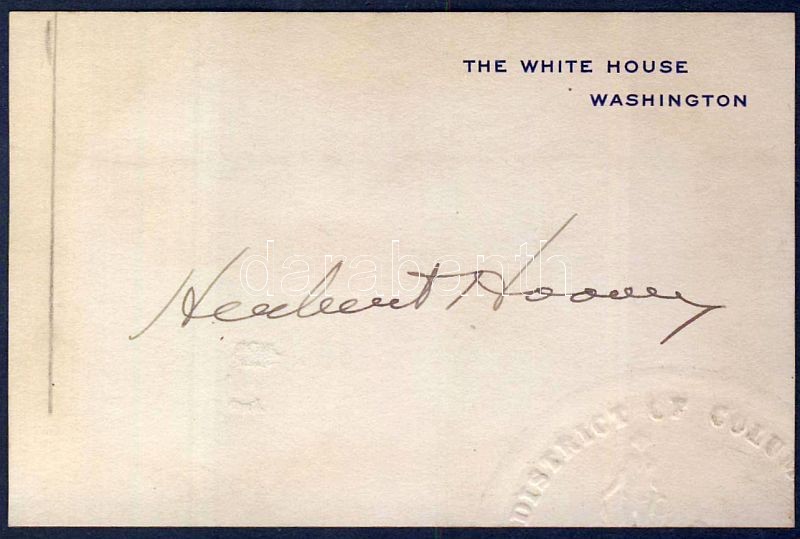 THE WHITE HOUSE
WASHINGTON
darabanth
Herbert Hoover
DISTRICT OF COLUM